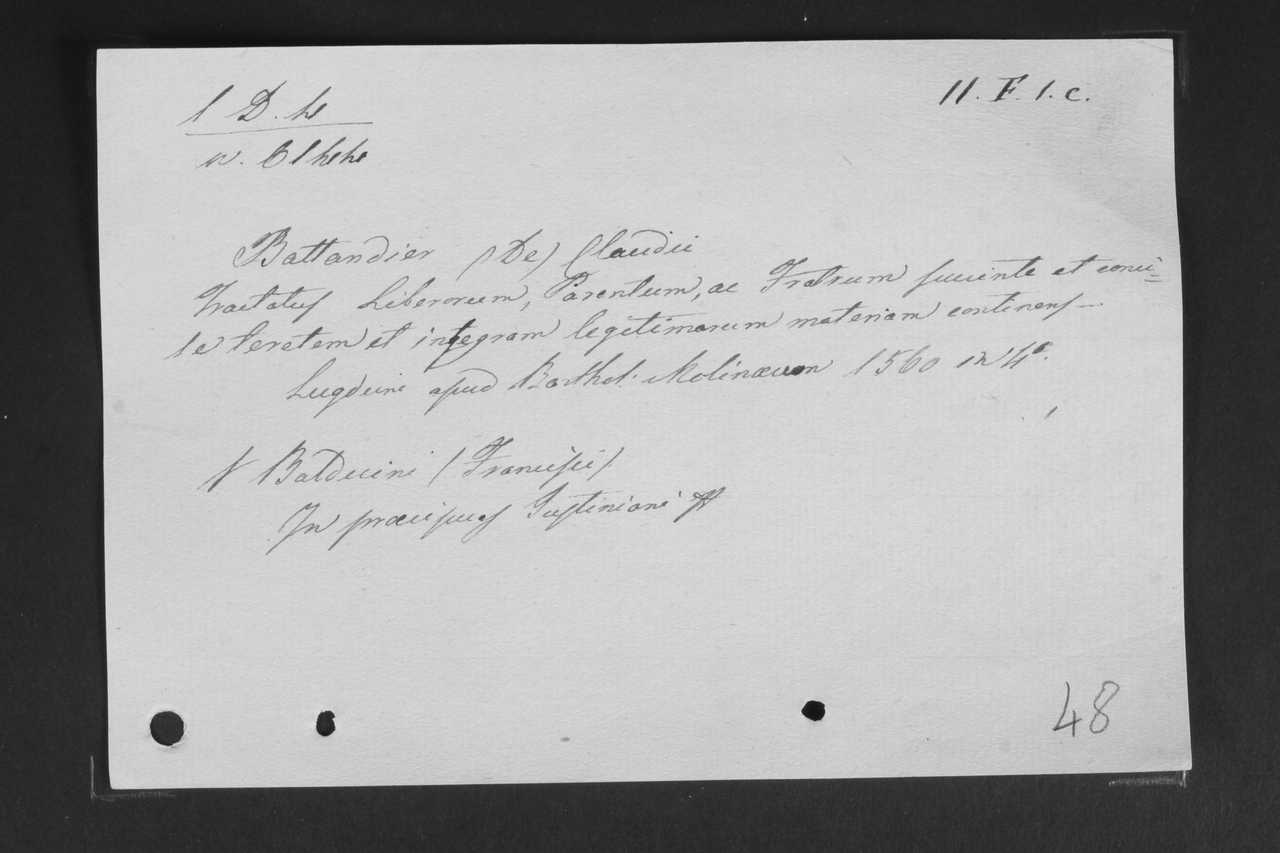 1 D. 4
11. F. 1. c.
Battandier (De) Claudii
Tractatus Liberorum, Parentum, ac Fratrum succinte et conci=
se teretem et integram legitimarum materiam continens—
Lugduni apud Barthol: Molinæum 1560 in 4°.
Balduini (Francisci)
In præcipuas Justiniani
48